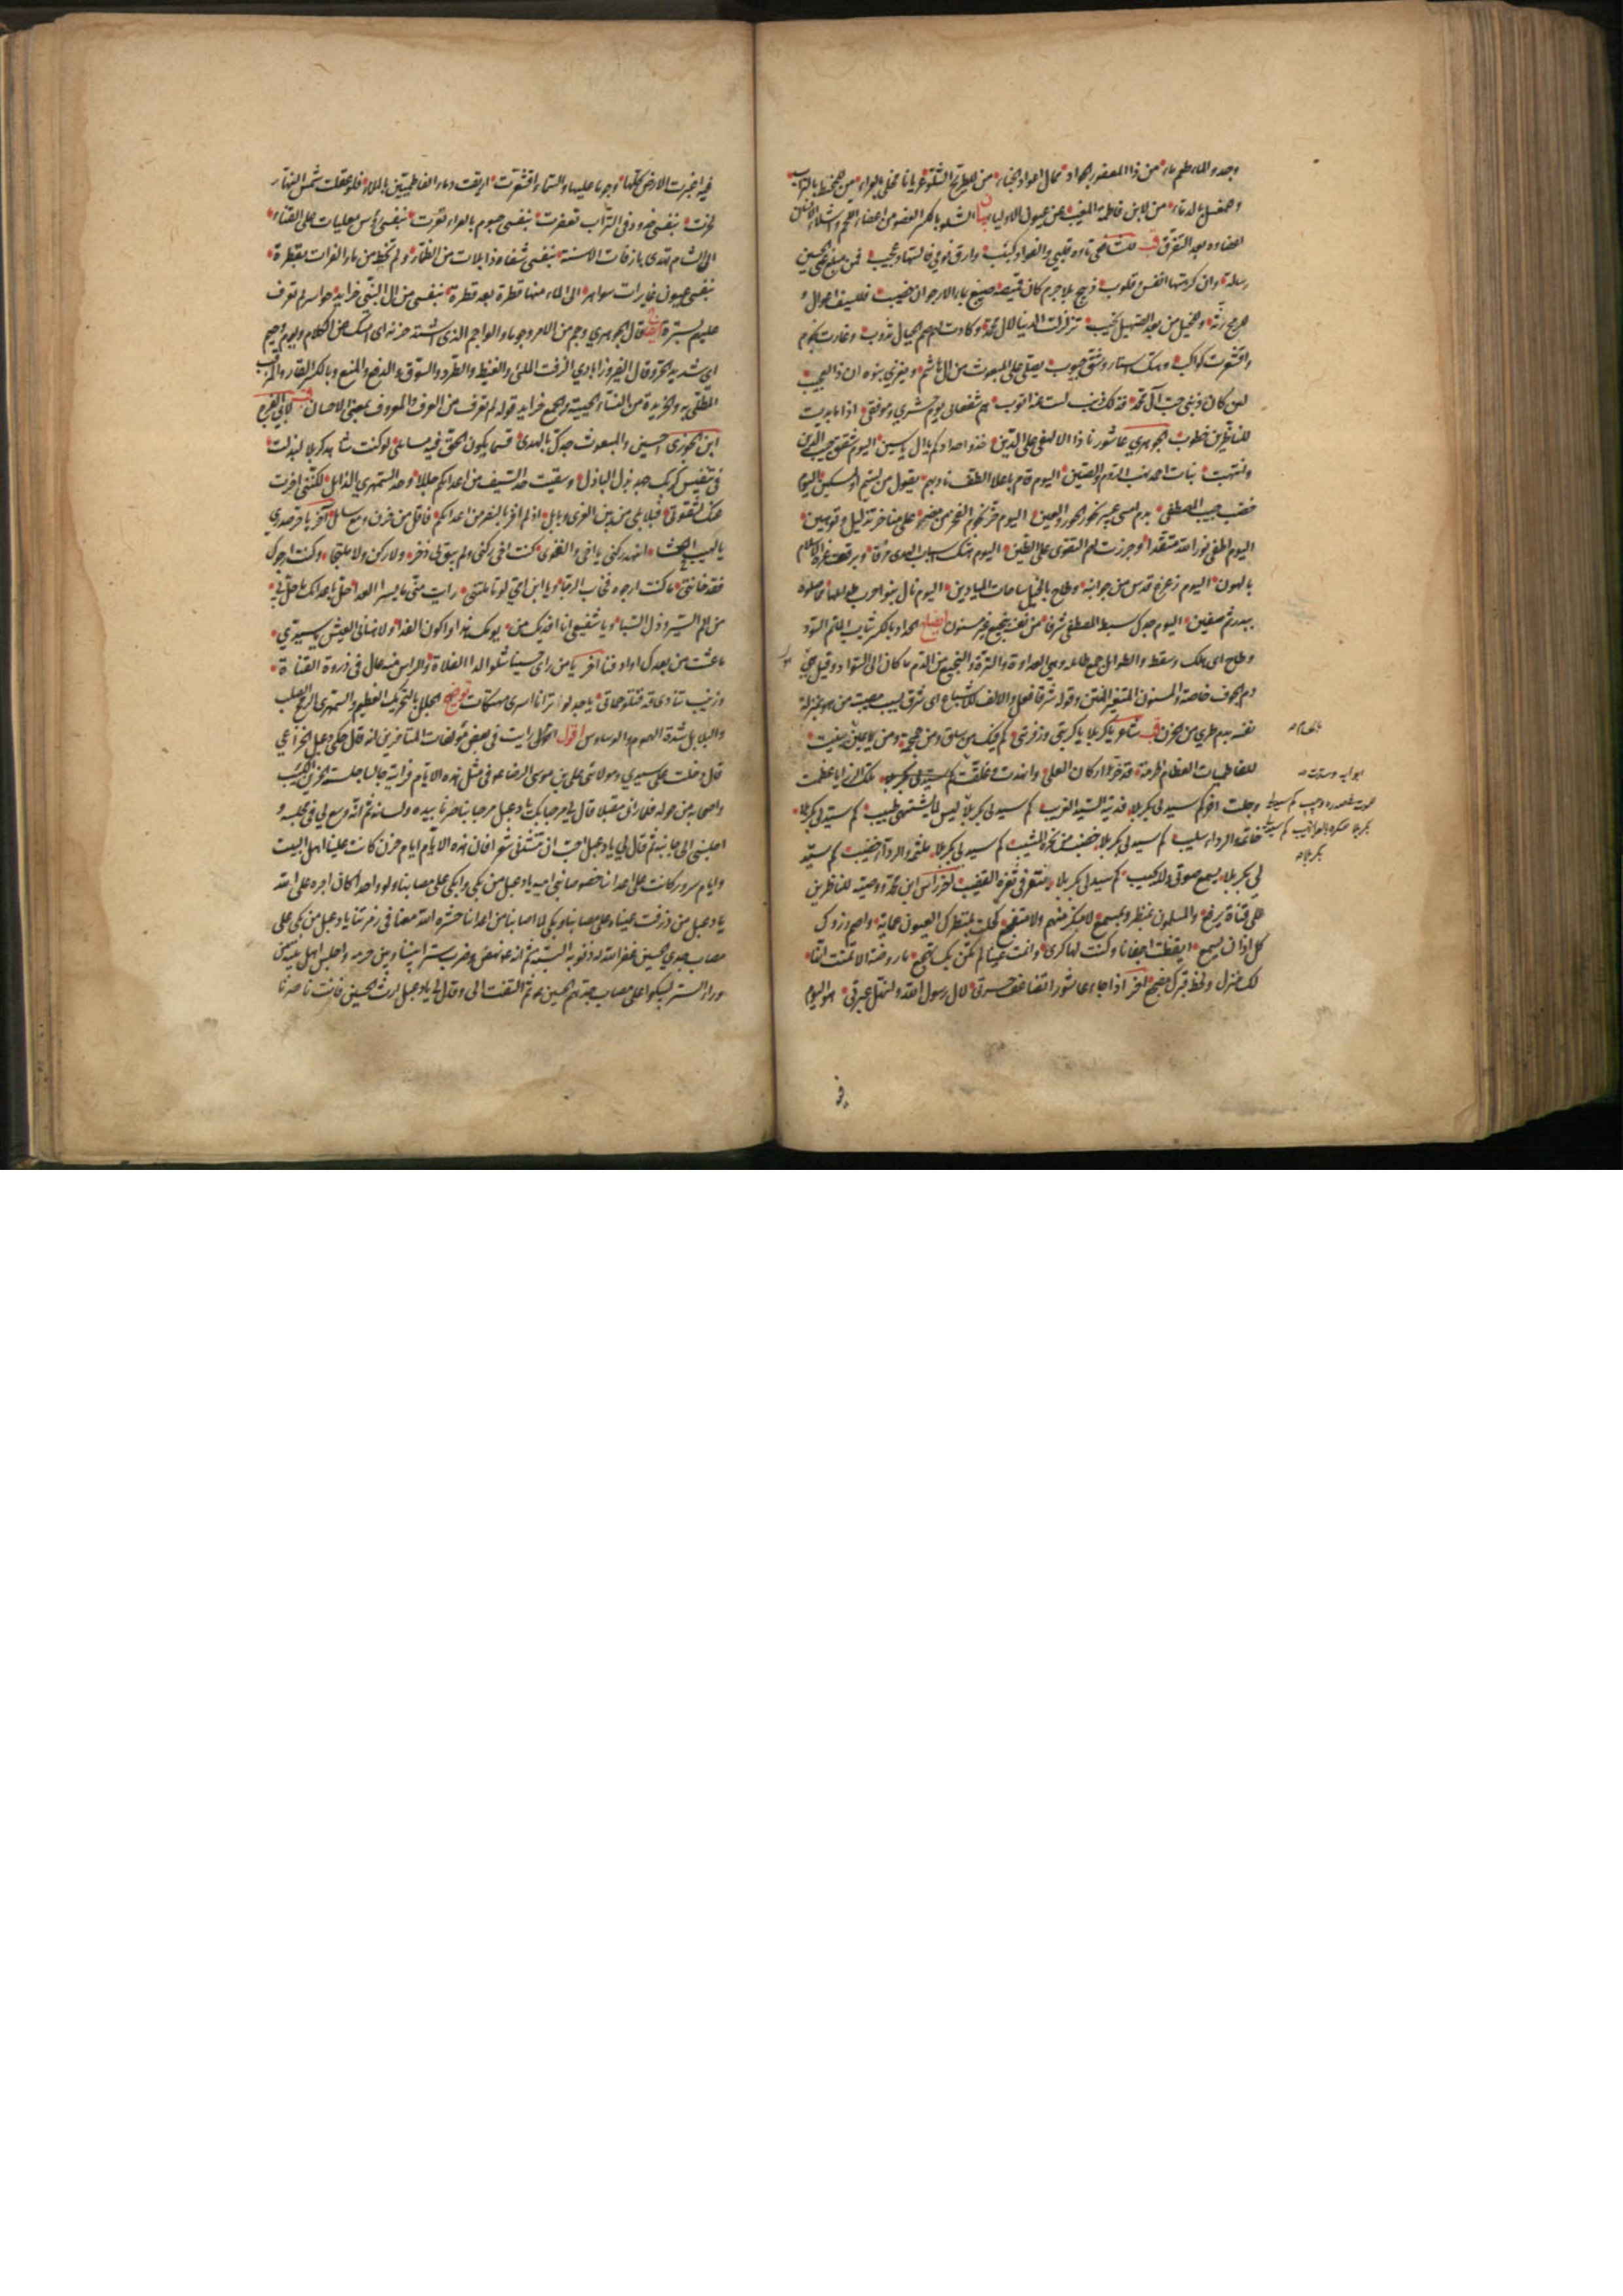 وجده والماء طم ماء من ذا المعفور الجواد ممال اعواد الخباء من للطريح الشلو عريانا مخلى بالعراء من للمحنط بالتراب
وللمغسل بالدماء من لابن فاطمة المغيب عن عيون الاولياء بيان الشلو بالكسر العضو من اعضاء اللحم واشلاء الانسان
اعضاؤه بعد التفرق قب للشافعي تاوه قلبي والفؤاد كئيب وارق نومي فالسهاد عجيب فمن مبلغ عني الحسين
رسالة وان كرهتها انفس وقلوب ذبيح بلا جرم كان قميصه صبيغ بماء الارجوان خضيب فللسيف اعوال و
للرمح رنة وللخيل من بعد الصهيل نحيب تزلزلت الدنيا لال محمد وكادت لهم صم الجبال تذوب وغارت نجوم
واقشعرت كواكب وهتك استار وشق جيوب يصلى على المبعوث من ال هاشم ويغزى بنوه ان ذا لعجيب
لئن كان ذنبي حب آل محمد فذلك ذنب لست عنه اتوب هم شفعائي يوم حشري وموقفي اذا ما بدت
للناظرين خطوب الجوهري عاشورنا ذا الا لهفي على الدين خذوا حدادكم يا ال ياسين اليوم شقق جيب الدين
وانتهبت بنات احمد نهب الروم والصين اليوم قام باعلا الطف نادبهم يقول من ليتيم او لمسكين اليوم
خضب جيب المصطفى بدم امسى عبير نحور الحور والعين اليوم خر نجوم الفخر من مضر على مناخر تذليل وتوهين
اليوم اطفى نور الله متقدا وجرزت لهم التقوى على الطين اليوم هتك اسباب الهدى مزقا وبرقعت غرة الاسلام
بالهون اليوم زعزع قدس من جوانبه وطاح بالخيل ساحات الميادين اليوم نال بنو حرب طوائلها مما صلوه
ببدر ثم صفين اليوم جدل سبط المصطفى شرقا من نفسه بنجيع غير مسنون ايضاح الحداد بالكسر ثياب الماتم السود
وطاح اى هلك وسقط والطوائل جمع طائلة وهي العداوة والترة والنجيع من الدم ما كان الى السواد وقيل هو
دم الجوف خاصة والمسنون المتغير المنتن وقوله شرقا فعل والالف للاشباع اى شرق بسبب مصيبة من هو بمنزلة
نفسه بدم طري من الحزن قب شاعر يا كربلا يا كربتي وزفرتي كم فيك من ساق ومن جمجمة ومن يمين بينت
للفاطميات العظام الحرمة قد خر اركان العلى وانهدت وغلقت كم سيد لي بكربلا تلك الرزايا عظمت
وجلت اخر كم سيد لي بكربلا فديته السيد الغريب كم سيد لي بكربلا ليس لما يشتهي طبيب كم سيد لي بكربلا
خاتمه والرداء سليب كم سيد لي بكربلا خضب من نحره المشيب كم سيد لي بكربلا ملثمه والرداء خضيب كم سيد
لي بكربلا يسمع صوتي ولا يجيب كم سيد لي بكربلا ينقر في ثغره القضيب اخر راس ابن بنت محمد ووصيه للناظرين
على قناة يرفع والمسلمون بمنظر وبمسمع لا منكر منهم ولا متفجع كحلت بمنظرك العيون عماية واصم رزؤك
كل اذان تسمع ايقظت اجفانا وكنت لها كرى وانمت عينا لم تكن بك تهجع ما روضة الا تمنت انها
لك منزل ولخط قبرك مضجع اخر اذا جاء عاشورا تضاعف حسرتي لال رسول الله وانهل عبرتي هو اليوم
فيه اغبرت الارض كلها وجوما عليها والسماء اقشعرت اريقت دماء الفاطميين بالملا فلو عقلت شمس النهار
لخرت بنفسي خدود في التراب تعفرت بنفسي جسوم بالعراء تعرت بنفسي رؤس معليات على القناء
الى الشام تهدى بازقات الاسنة بنفسي شفاه ذابلات من الظماء ولم تحظ من ماء الفرات بقطرة
بنفسي عيون غايرات سواهر الى الماء منها قطرة بعد قطرة بنفسي من ال النبي خرايد حواسر لم تعرف
عليهم بسترة ايضاح قال الجوهري وجم من الامر وجوما والواجم الذى اشتد حزنه اى امسك عن الكلام ويوم وجيم
اى شديد الحر وقال الفيروزابادي الزفت الملئ والغيظ والطرد والسوق والدفع والمنع وبالكسر القار والمزفت
المطلى به والخريدة من النساء الحيية والجمع خرايد قوله لم تعرف من العرف والمعروف بمعنى الاحسان قب لابي الفرج
ابن الجوزى احسين والمبعوث جدك بالهدى قسما يكون الحق فيه مسائلي لو كنت شاهد كربلا لبذلت
في تنفيس كربك جهد بذل الباذل وسقيت حد السيف من اعدائكم عللا وحد السمهري الذابل لكنني اخرت
عنك لشقوتي فبلابلي من بين الغرى وبابل اذ لم افز بالنصر من اعدائكم فاقل من حزن ودمع سايل آخر يا حر صدري
يا لهيب الحشا انهد ركني يا اخي والقوى كنت اخي ركني ولم يبق لي ذخر ولا ركن ولا ملتجا وكنت ارجوك
فقد خانني ما كنت ارجوه فخاب الرجا ويا ابن امي لو تاملتني رايت مني ما يسر العدا حل باعدائك ما حل بي
من الم السير وذل السبا ويا شقيقي انا افديك من يومك هذا واكون الفدا ولا هناني العيش يا سيدي
ما عشت من بعدك او ادفنا اخر يا من راى حسينا شلوا لدا الفلاة والراس منه عال في ذروة القناة
وزينب تنادى قد قتلوا حماتي يا جد لو ترانا اسرى مهتكات توضيح الجلل بالتحريك العظيم والسمهري الرمح الصلب
والبلابل شدة الهموم والوساوس اقول اخوكم رايت في بعض مؤلفات المتاخرين انه قال حكى دعبل الخزاعي
قال دخلت على سيدي ومولاي علي بن موسى الرضا ع في مثل هذه الايام فرايته جالسا جلسة الحزين الكئيب
واصحابه من حوله فلما راني مقبلا قال لي مرحبا بك يا دعبل مرحبا بناصرنا بيده ولسانه ثم انه وسع لي في مجلسه و
اجلسني الى جانبه ثم قال لي يا دعبل احب ان تنشدني شعرا فان هذه الايام ايام حزن كانت علينا اهل البيت
وايام سرور كانت على اعدائنا خصوصا بني امية يا دعبل من بكى وابكى على مصابنا ولو واحدا كان اجره على الله
يا دعبل من ذرفت عيناه على مصابنا وبكى لما اصابنا من اعدائنا حشره الله معنا في زمرتنا يا دعبل من بكى على
مصاب جدي الحسين غفر الله له ذنوبه البتة ثم انه ع نهض وضرب سترا بيننا وبين حرمه واجلس اهل بيته من
وراء الستر ليبكوا على مصاب جدهم الحسين ع ثم التفت الى وقال لي يا دعبل ارث الحسين فانت ناصرنا